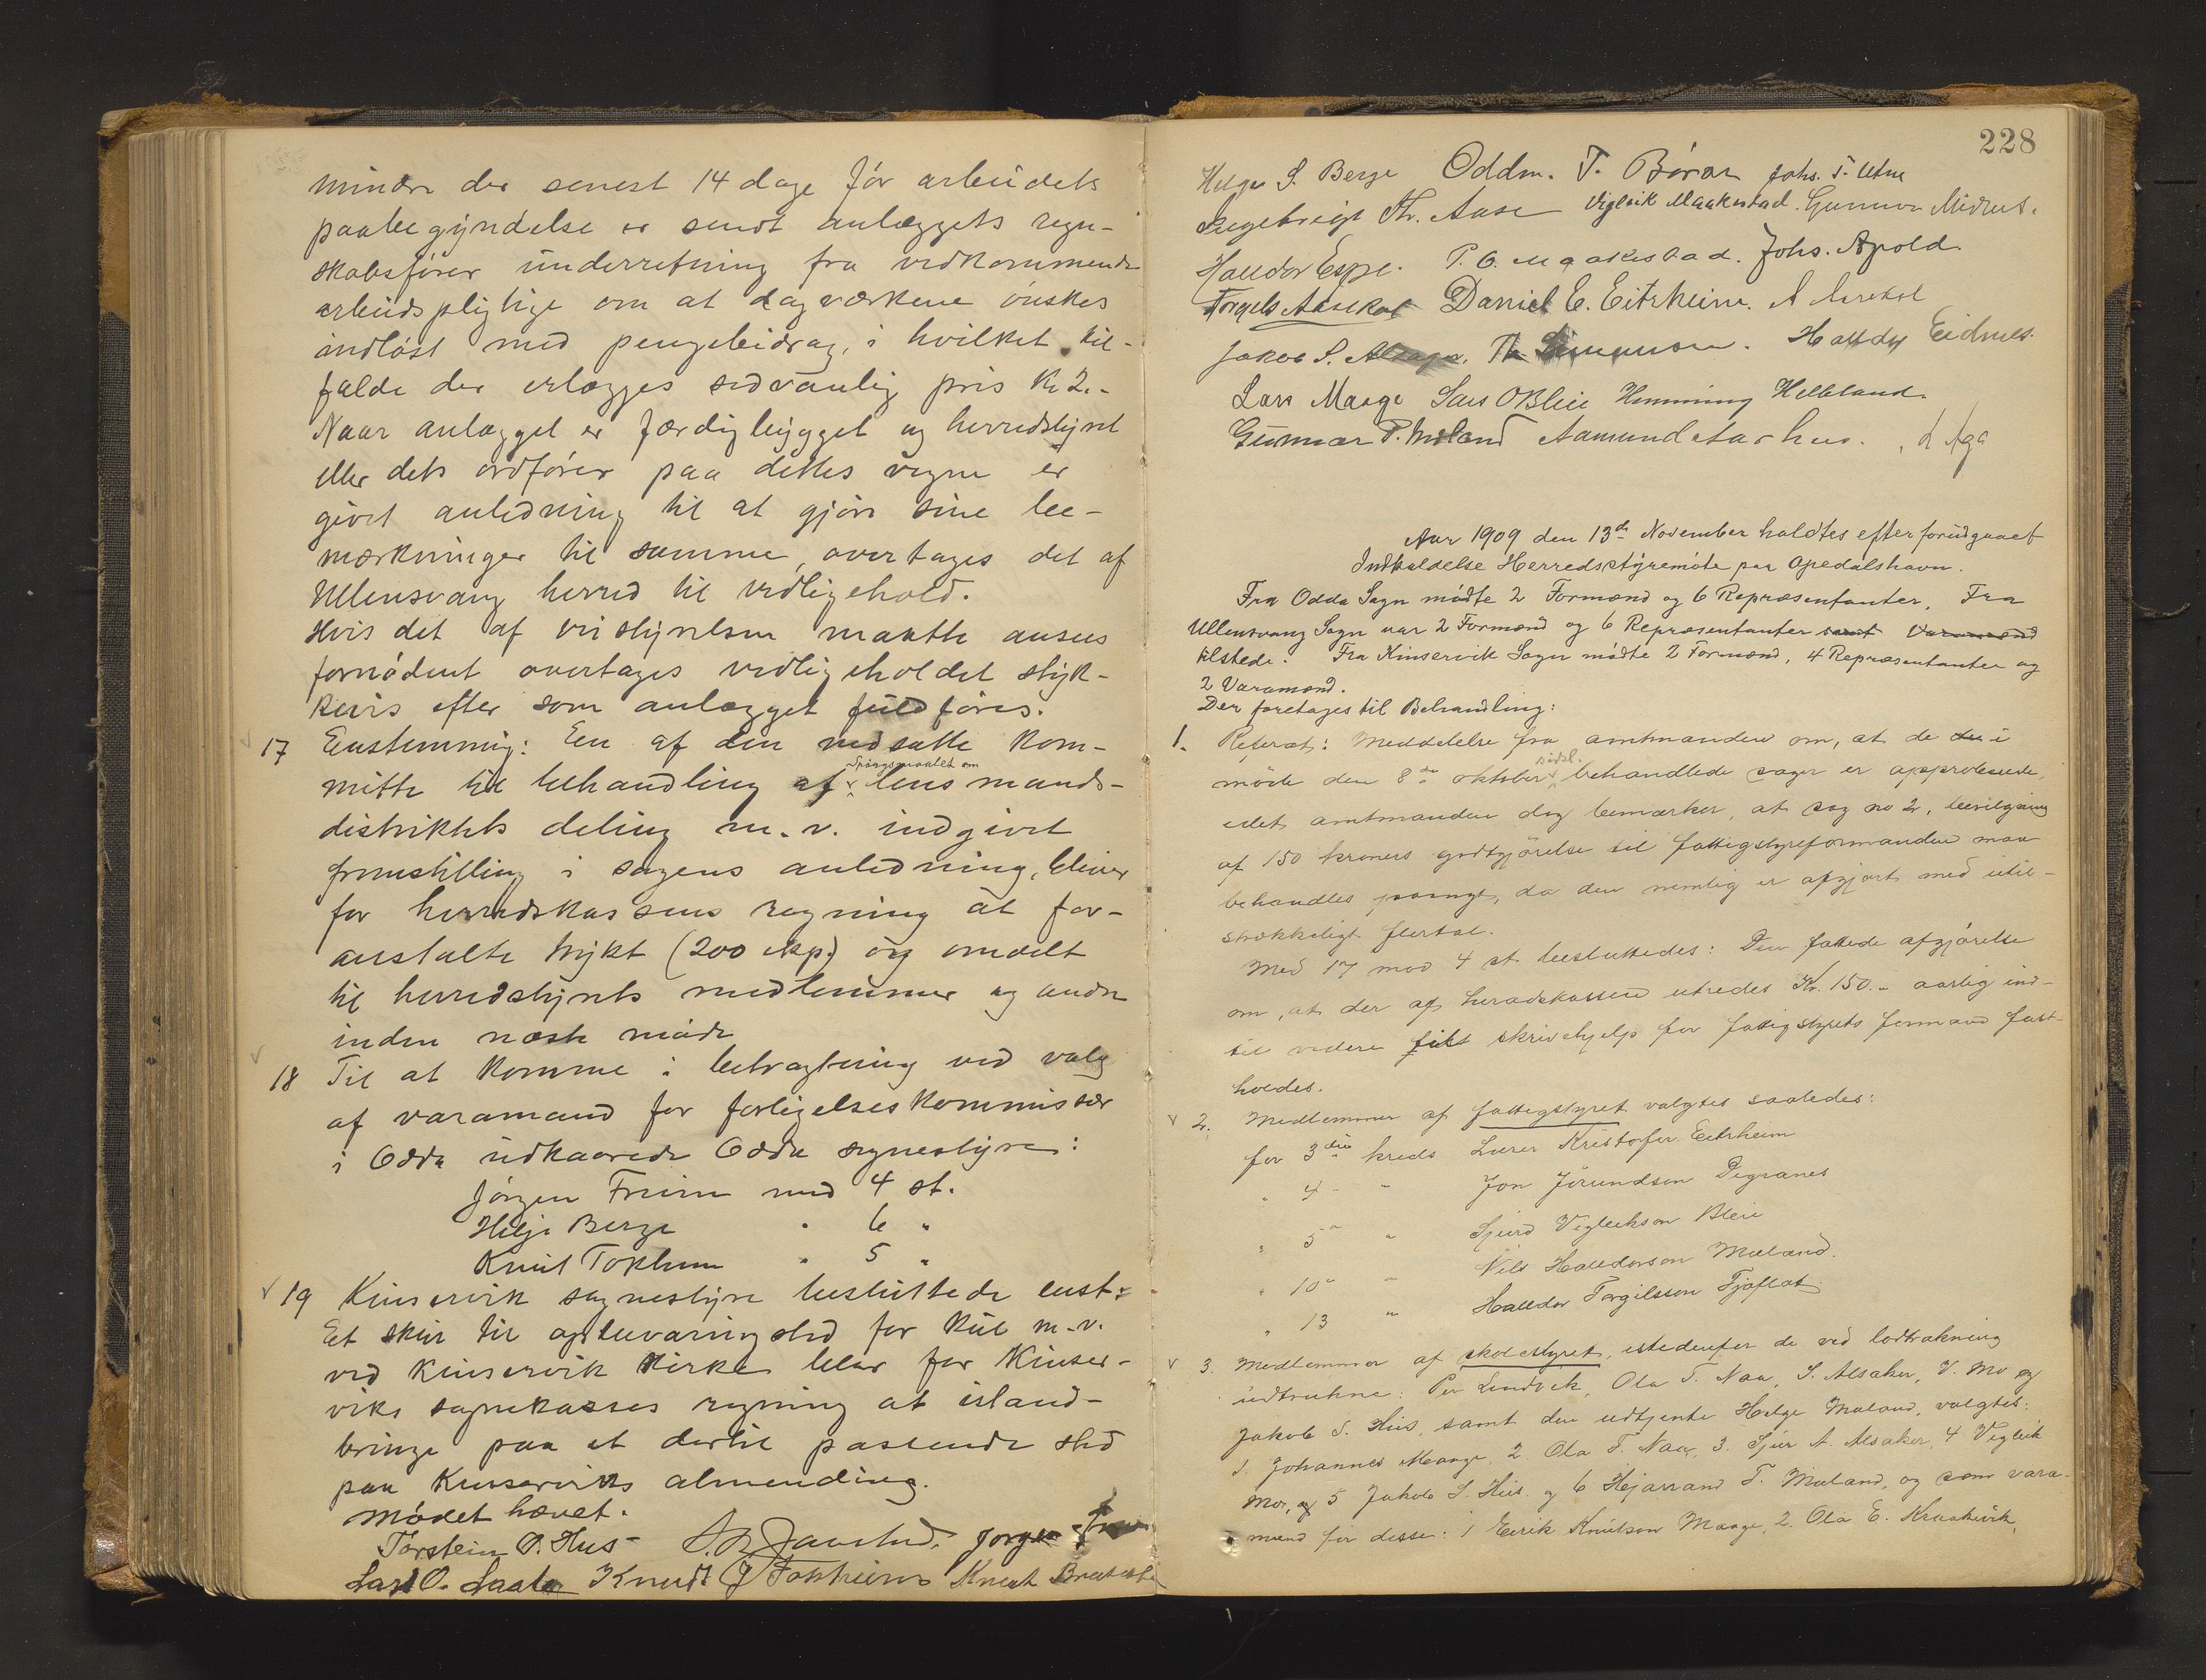 mindre der senest 14 dage før arbeidets
paabegyndelse er sendt anlæggets regn-
skabsfører underretning fra vedkommende
arbeidspligtige om at dagværkene ønskes
indløst med pengebidrag, i hvilket til-
fælde der erlægges sedvanlig pris Kr 2.-
Naar anlægget er færdigbygget og herredstyret
eller dets ordfører paa dettes vegne er
givet anledning til at gjøre sine be-
mærkninger til samme, overtages det af
Ullensvang herred til vedligehold.
Hvis det af veistyrelsen maatte ansees
fornødent overtages vedligeholdet styk-
kevis efter som anlægget fuldføres.
17 Enstemmig: En af den nedsatte kom-
mitte til behandling af spørgsmaalet om lensmands-
distriktets deling m.v. indgivet
fremstilling i sagens anledning, bliver
for herredskassens regning at for-
anstalte trykt (200 exp.) og omdelt
til herredstyrets medlemmer og andre
inden næste møde
18 Til at komme i betragtning ved valg
af varamand for forligelseskommissær
i Odda udkaarede Odda sognestyre:
Jørgen Freim med 4 st.
Helje Berge " 6 "
Knut Tokheim " 5 "
19 Kinservik sognestyre besluttede enst:
Et skur til opbevaringsted for kul m.v.
ved Kinservik kirke blir for Kinser-
viks sognekasses regning at istand-
bringe paa et dertil passende sted
paa Kinserviks almending.
Mødet hævet.
Torstein O. Hus Jørgen
Lars O. Knudt Tokheim Knut
228
Helge S. Berge Oddm. T. Børar Johs. T. Utne
Th. Aase Vigleik Maakestad. Gunnar Midnes.
Halldor Espe. P. O. Maakestad. Johs. Apold
Torgels Aasekot Daniel E. Eitrheim. A
Jakob S. Th. Simonson. Halldor Eidnes.
Lars Maage Lars O Bleie Hemming Helleland
Gunnar P. Moland Aamund Aarhus. L Aga
Aar 1909 den 13de November holdtes efter forudgaaet
Indkaldelse Herredsstyremøte paa Apedalshavn.
Fra Odda Sogn mødte 2 Formænd og 6 Repræsentanter. Fra
Ullensvang Sogn var 2 Formænd og 6 Repræsentanter samt Varamænd
tilstede. Fra Kinservik Sogn mødte 2 Formænd, 4 Repræsentanter og
2 Varamænd.
Der foretages til Behandling:
1. Referat: Meddelelse fra amtmanden om, at de du i
møde den 8de oktober sidstl. behandlede sager er approberede,
idet amtmanden dog bemærker, at sag no 2, bevilgning
af 150 kroners godtgjørelse til fattigstyreformanden maa
behandles paanyt, da den nemlig er afgjort med util-
strækkeligt flertal.
Med 17 mod 4 st besluttedes: Den fattede afgjørelse
om, at der af herredskassen utredes Kr. 150.- aarlig ind-
til videre til skrivehjelp for fattigstyrets formand fast-
holdes.
2. Medlemmer af fattigstyret valgtes saaledes:
for 3die kreds Lærer Kristofer Eitrheim
" 4 - " Jon Jørundson Digranes
" 5 " " Sjurd Vigleikson Bleie
" 10 " " Nils Halldorson Mæland.
" 13 " Halldor Torgilsson Tjoflot.
3. Medlemmer af skolestyret, istedenfor de ved lodtrækning
udtrukne: Per Lindvik, Ola T. Naa, S. Alsaker, V. Mo og
Jakob S. Hus, samt den udtjente Helge Mæland, valgtes:
1. Johannes Maage, 2. Ola T. Naa, 3. Sjur A. Alsaker, 4 Vigleik
Mo, og 5 Jakob S. Hus. og 6 Hejarrand T. Mæland, og som vara-
mænd for disse: 1 Eirik Knutson Maage, 2. Ola E. Kraakevik,